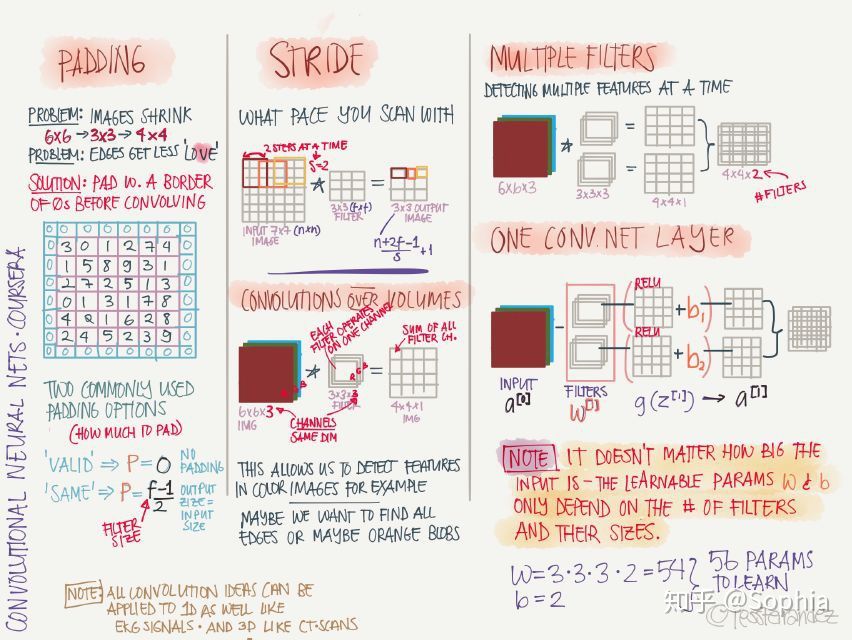 CONVOLUTIONAL NEURAL NETS · COURSERA
PADDING
PROBLEM: IMAGES SHRINK
6x6 → 3x3 → 4x4
PROBLEM: EDGES GET LESS 'LOVE'
SOLUTION: PAD W. A BORDER
OF 0s BEFORE CONVOLVING
0 0 0 0 0 0 0 0
0 3 0 1 2 7 4 0
0 1 5 8 9 3 1 0
0 2 7 2 5 1 3 0
0 0 1 3 1 7 8 0
0 4 2 1 6 2 8 0
0 2 4 5 2 3 9 0
0 0 0 0 0 0 0 0
TWO COMMONLY USED
PADDING OPTIONS
(HOW MUCH TO PAD)
'VALID' ⇒ P=0 NO PADDING
'SAME' ⇒ P= f-1/2 OUTPUT SIZE = INPUT SIZE
FILTER
SIZE
NOTE: ALL CONVOLUTION IDEAS CAN BE
APPLIED TO 1D AS WELL LIKE
EKG SIGNALS · AND 3D LIKE CT-SCANS
STRIDE
WHAT PACE YOU SCAN WITH
2 STEPS AT A TIME
S=2
* =
INPUT 7x7 (nxn)
IMAGE
3x3 (fxf)
FILTER
3x3 OUTPUT
IMAGE
n+2f-1/S +1
CONVOLUTIONS OVER VOLUMES
EACH
FILTER OPERATES
ON ONE CHANNEL
SUM OF ALL
FILTER CH.
R G B
* =
R G B
6x6x3
IMG
3x3x3
FILTER
4x4x1
IMG
CHANNELS
SAME DIM
THIS ALLOWS US TO DETECT FEATURES
IN COLOR IMAGES FOR EXAMPLE
MAYBE WE WANT TO FIND ALL
EDGES OR MAYBE ORANGE BLOBS
MULTIPLE FILTERS
DETECTING MULTIPLE FEATURES AT A TIME
* =
=
6x6x3
3x3x3
4x4x1
4x4x2
# FILTERS
ONE CONV. NET LAYER
RELU
( +b₁)
RELU
( +b₂)
INPUT
a[0]
FILTERS
W[1]
g(z[1]) → a[1]
NOTE IT DOESN'T MATTER HOW BIG THE
INPUT IS - THE LEARNABLE PARAMS W & b
ONLY DEPEND ON THE # OF FILTERS
AND THEIR SIZES.
W=3·3·3·2=54 } 56 PARAMS
b=2 TO LEARN
知乎 @Sophia